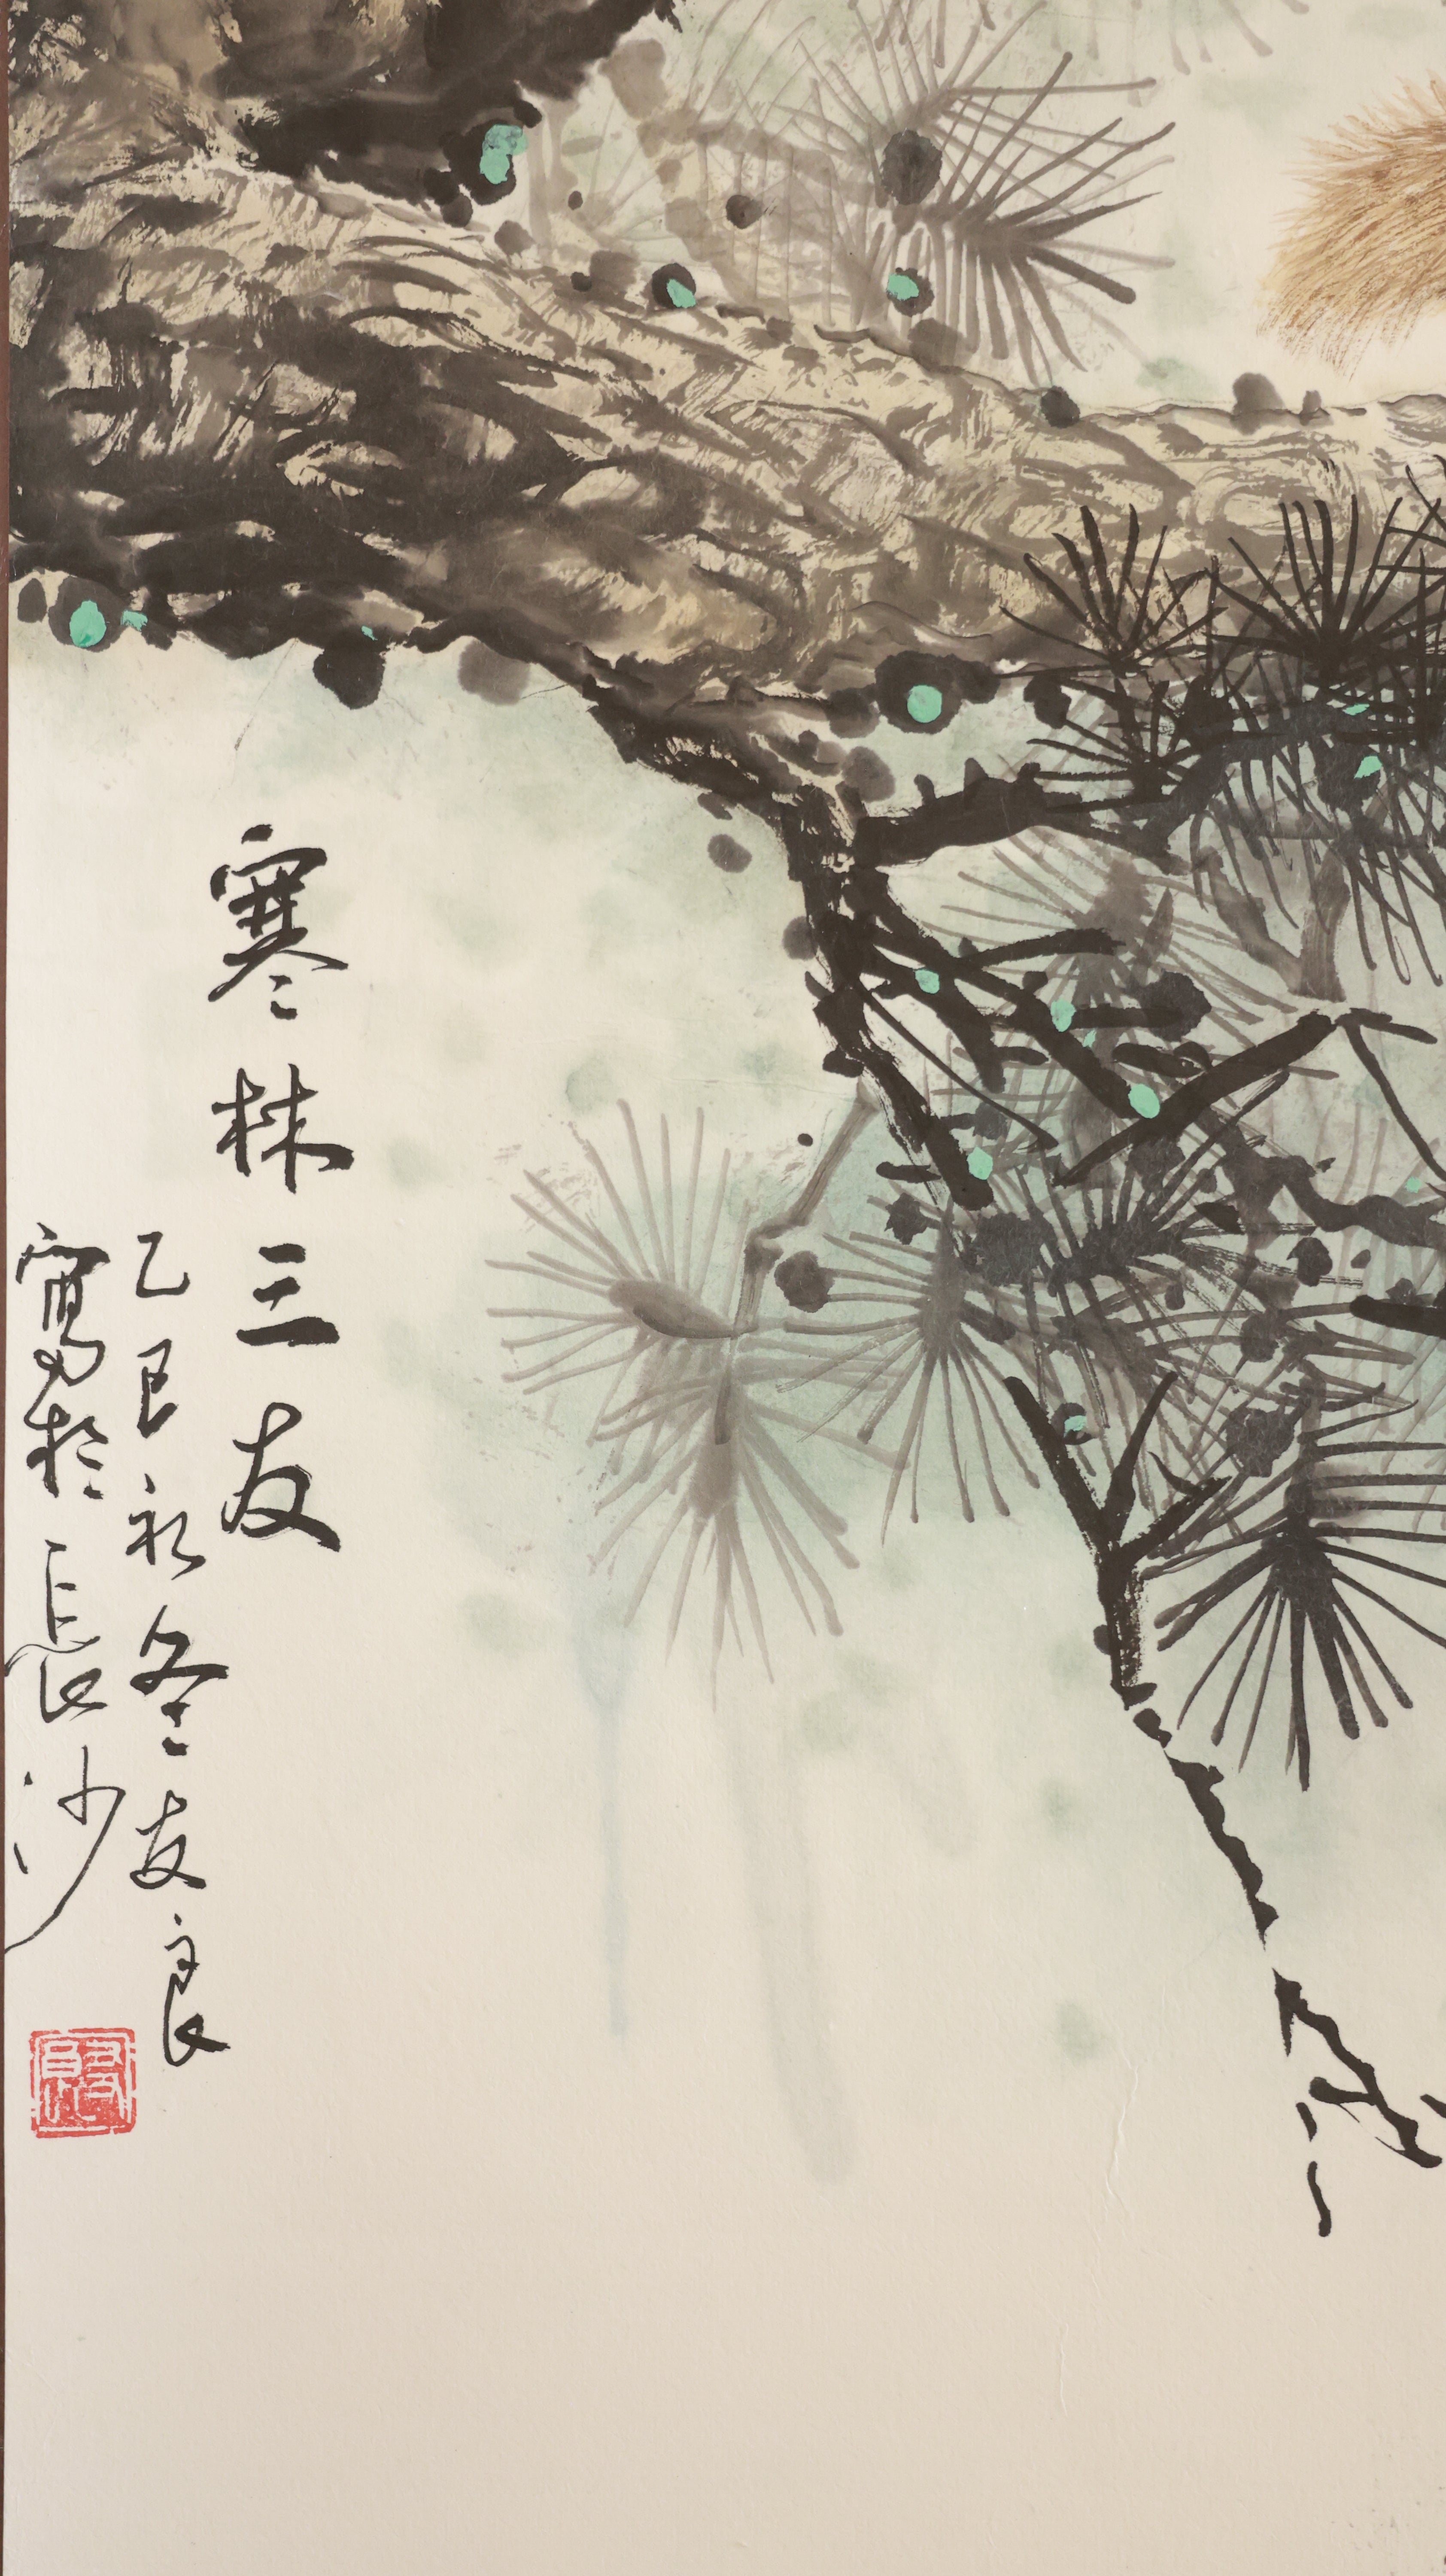 寒林三友
乙巳初冬友良
寫於長沙